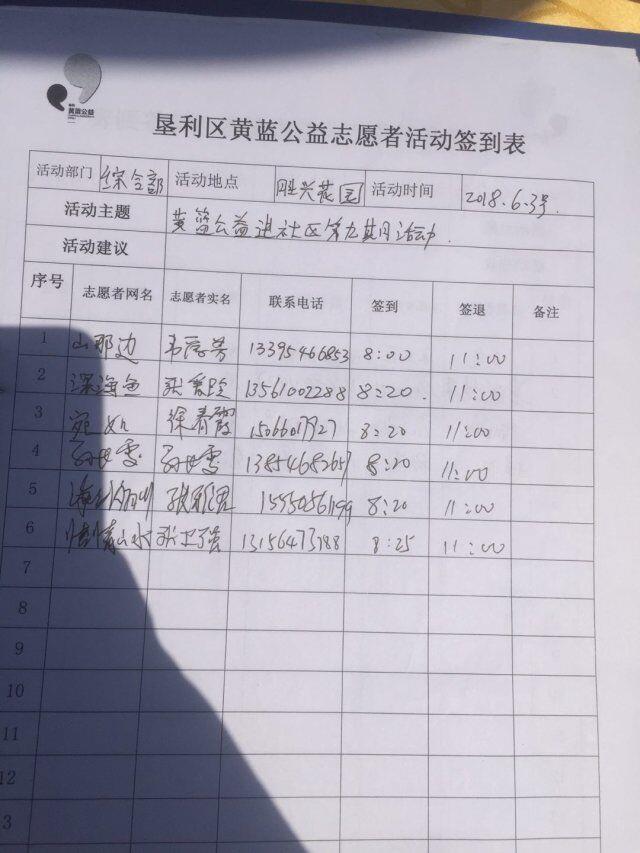 黄蓝公益
垦利区黄蓝公益志愿者活动签到表
活动部门 综合部 活动地点 胜兴花园 活动时间 2018.6.3号.
活动主题 黄蓝公益进社区第九其月活动.
活动建议
序号 志愿者网名 志愿者实名 联系电话 签到 签退 备注
1 山那边 13395466853 8:00 11:00
2 深海鱼 13561002288 8:20. 11:00
3 宛如 徐春霞 15066017927 8:20 11:00
4 8:20 11:00
5 8:20 11:00
6 山水 张卫强 8:25 11:00
7
8
9
10
11
12
3